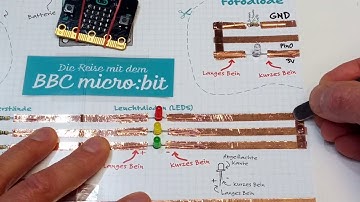 Batterie
Fotodiode
GND
Pin0
3V
Langes Bein
Kurzes Bein
Die Reise mit dem
BBC micro:bit
erstände
Leuchtdioden (LEDs)
Langes Bein
+
-
Kurzes Bein
Abgeflachte
Kante
Kurzes Bein
Langes Bein